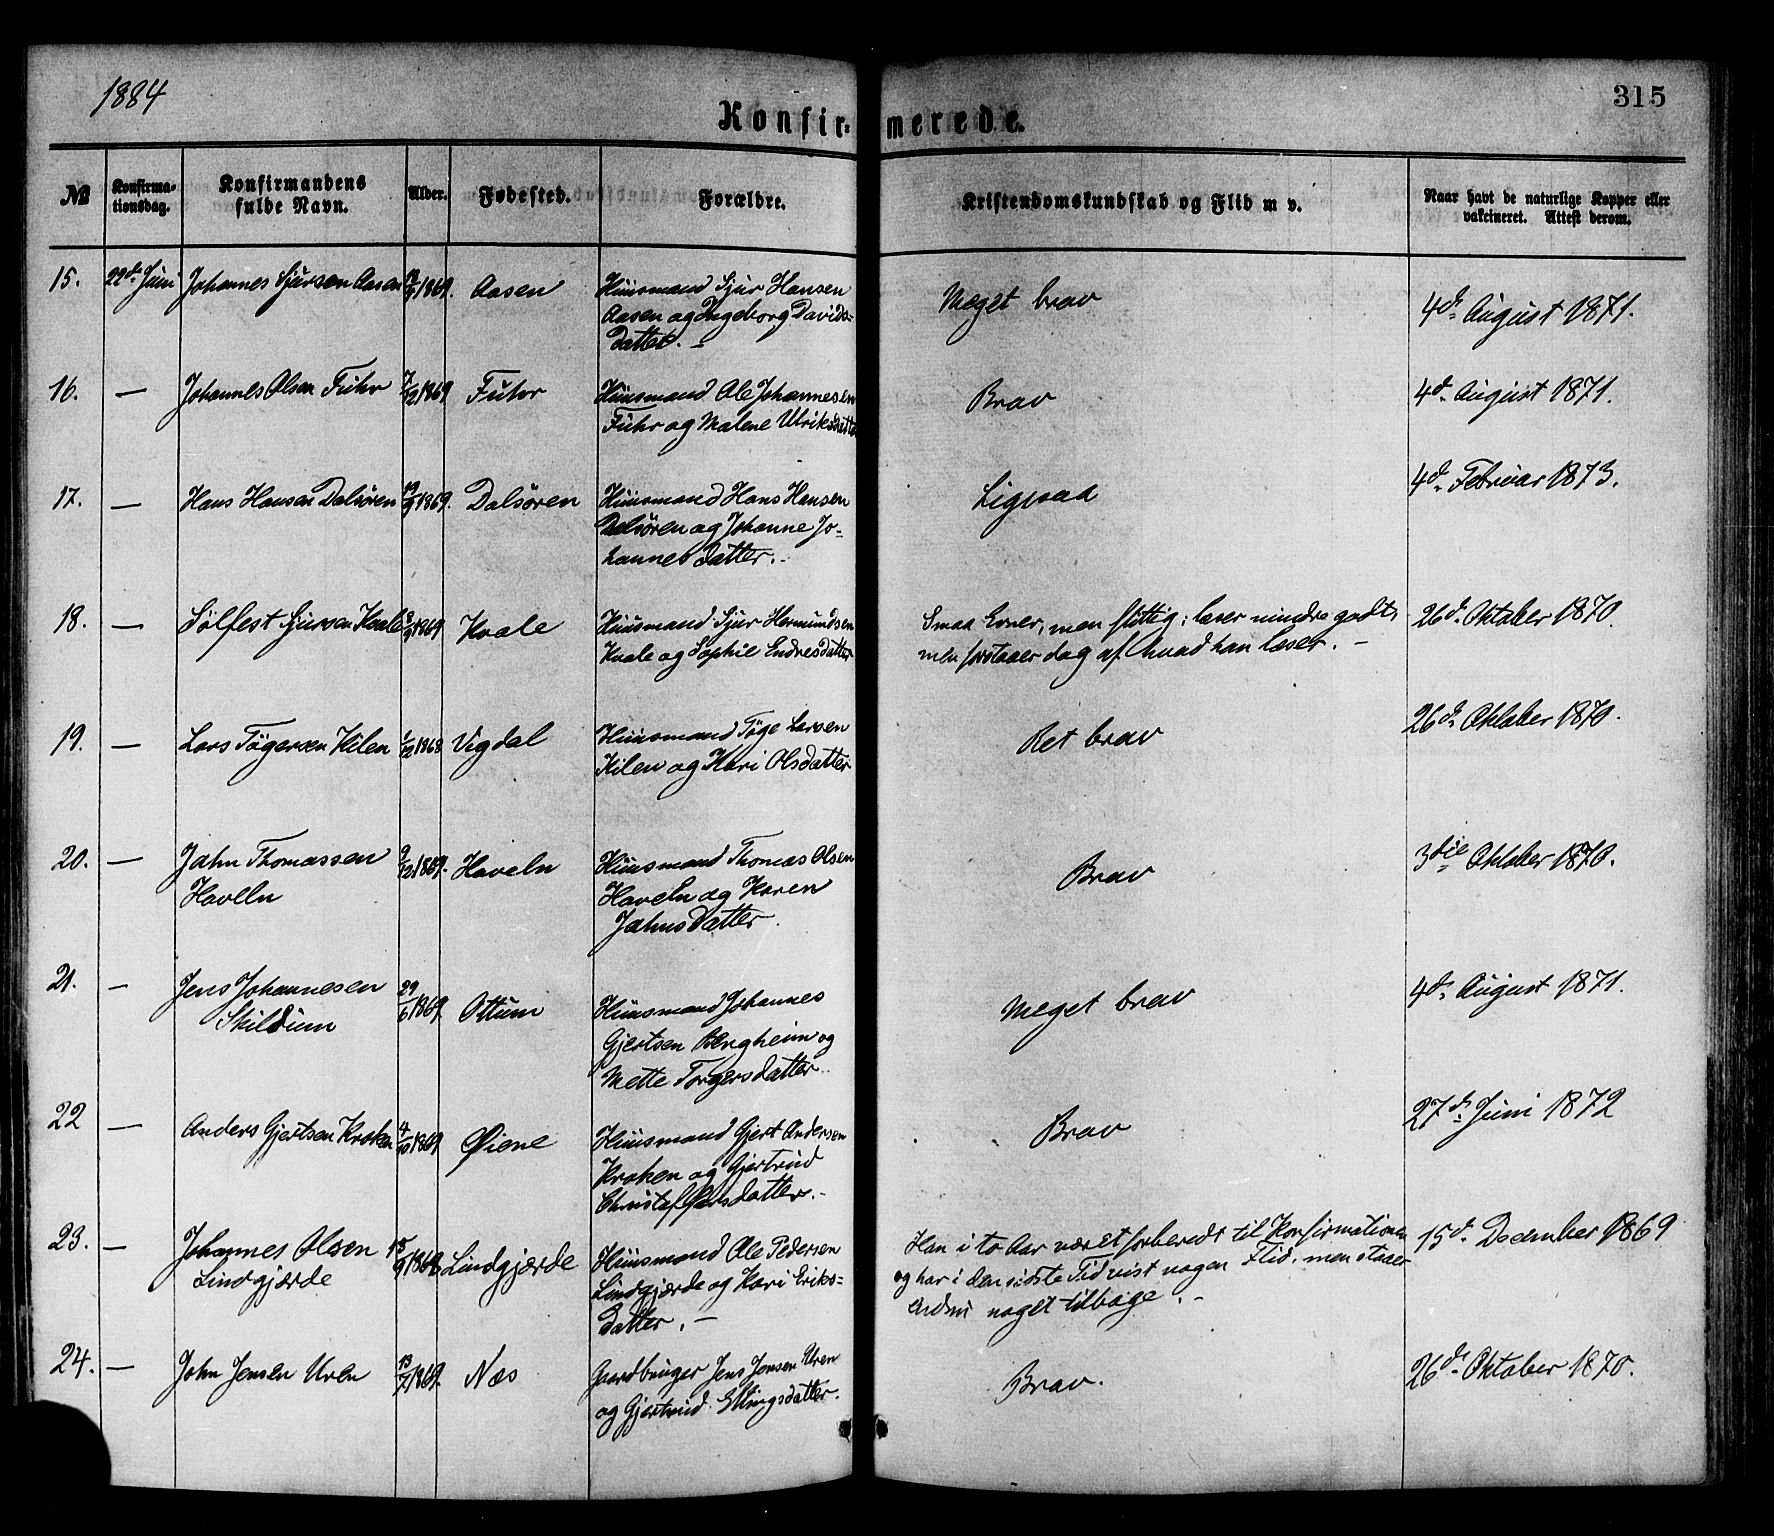 1884
315
Konfir- merede.
№
Konfirma-
tionsdag.
Konfirmandens
fulde Navn.
Alder.
Fødested.
Forældre.
Kristendomskundskab og Flid m v.
Naar havt de naturlige Kopper eller
vakcineret. Attest derom.
15. 22de Juni Johannes Sjursen Aasen 1869. Aasen Huusmand Sjur Hansen
Aasen og Ingeborg Davids-
datter. –
Meget brav 4de August 1871.
16. — Johannes Olsen Fuhr 7/12 1869 Fuhr Huusmand Ole Johannesen
Fuhr og Malene Ulriksdatter
Brav 4de August 1871.
17. — Hans Hansen Dalsøren 1869. Dalsøren Huusmand Hans Hansen
Dalsøren og Johanne Jo-
hannesdatter. -
Ligesaa 4de Februar 1873.
18. — Sølfest Sjursen Kvale 1869 Kvale Huusmand Sjur Hermundsen
Kvale og Sophie Endresdatter
Smaa Evner, men flittig; læser mindre godt,
men forstaaer dog af hvad han læser. –
26de Oktober 1870.
19. — Lars Tøgersen Kilen 1/12 1868 Vigdal Huusmand Tøge Larsen
Kilen og Kari Olsdatter
Ret brav 26de Oktober 1870.
20. — John Thomassen
Haveln
9/12 1869. Haveln Huusmand Thomas Olsen
Haveln og Karen
Johnsdatter.
Brav 3die Oktober 1870.
21. — Jens Johannesen
Skildum
29/6 1869. Ottum Huusmand Johannes
Gjertsen Bergheim og
Mette Torgersdatter.
Meget brav 4de August 1871.
22 — Anders Gjertsen Kroken 4/10 1869 Øiene Huusmand Gjert Andersen
Kroken og Gjertrud
Christoffersdatter. -
Brav 27de Juni 1872
23. — Johannes Olsen
Lindgjærde
15/9 1868 Lindgjærde Huusmand Ole Pedersen
Lindgjærde og Kari Eriks-
datter. –
Han i to Aar været forberedt til Konfirmationen
og har i den sidste Tid vist nogen Flid, men staaer
endnu noget tilbage. –
15de December 1869
24. — John Jensen Uren 13/7 1869. Næs Gaardbruger Jens Jensen Uren
og Gjertrud Ellingsdatter.
Brav. 26de Oktober 1870.